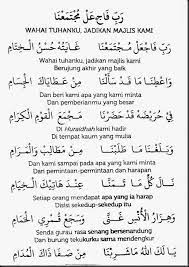 رَبِّ فَاجْعَلْ مُجْتَمَعْنَا
WAHAI TUHANKU, JADIKAN MAJLIS KAMI
رَبِّ فَاجْعَلْ مُجْتَمَعْنَا غَايَتُهُ حُسْنُ الْخِتَامِ
Wahai tuhanku, jadikan majlis kami
Berujung akhir yang baik
وَاعْطِنَا مَا قَدْ سَأَلْنَا مِنْ عَطَايَاكَ الْجِسَامِ
Dan beri kami apa yang kami minta
Dan pemberianmu yang besar
فِي حُرَيْضَة قَدْ حَضَرْنَا مَجْمَعَ الْقَوْمِ الْكِرَامِ
Di Huraidhah kami hadir
Di tempat kaum yang mulia
مِنْ مَطَالِبْ وَالْمَرَامِ
Dan kami sampai pada apa yang kami minta
Dari pemberian dan apa yang kami harap
نَالَ كُلٌّ مَا تَمَنَّى عِنْدَ هَاتِيْكَ الْخِيَامِ
Setiap orang mendapat apa yang ia harap
Disisi sekedup-sekedup itu
وَهَزَارُ الْأُنْسِ غَنَّى وَسَجَعَ قُمْرِيُّ الْحَمَامِ
Senda gurau rasa senang bersenandung
Dan burung tekukurku sama mendengkur